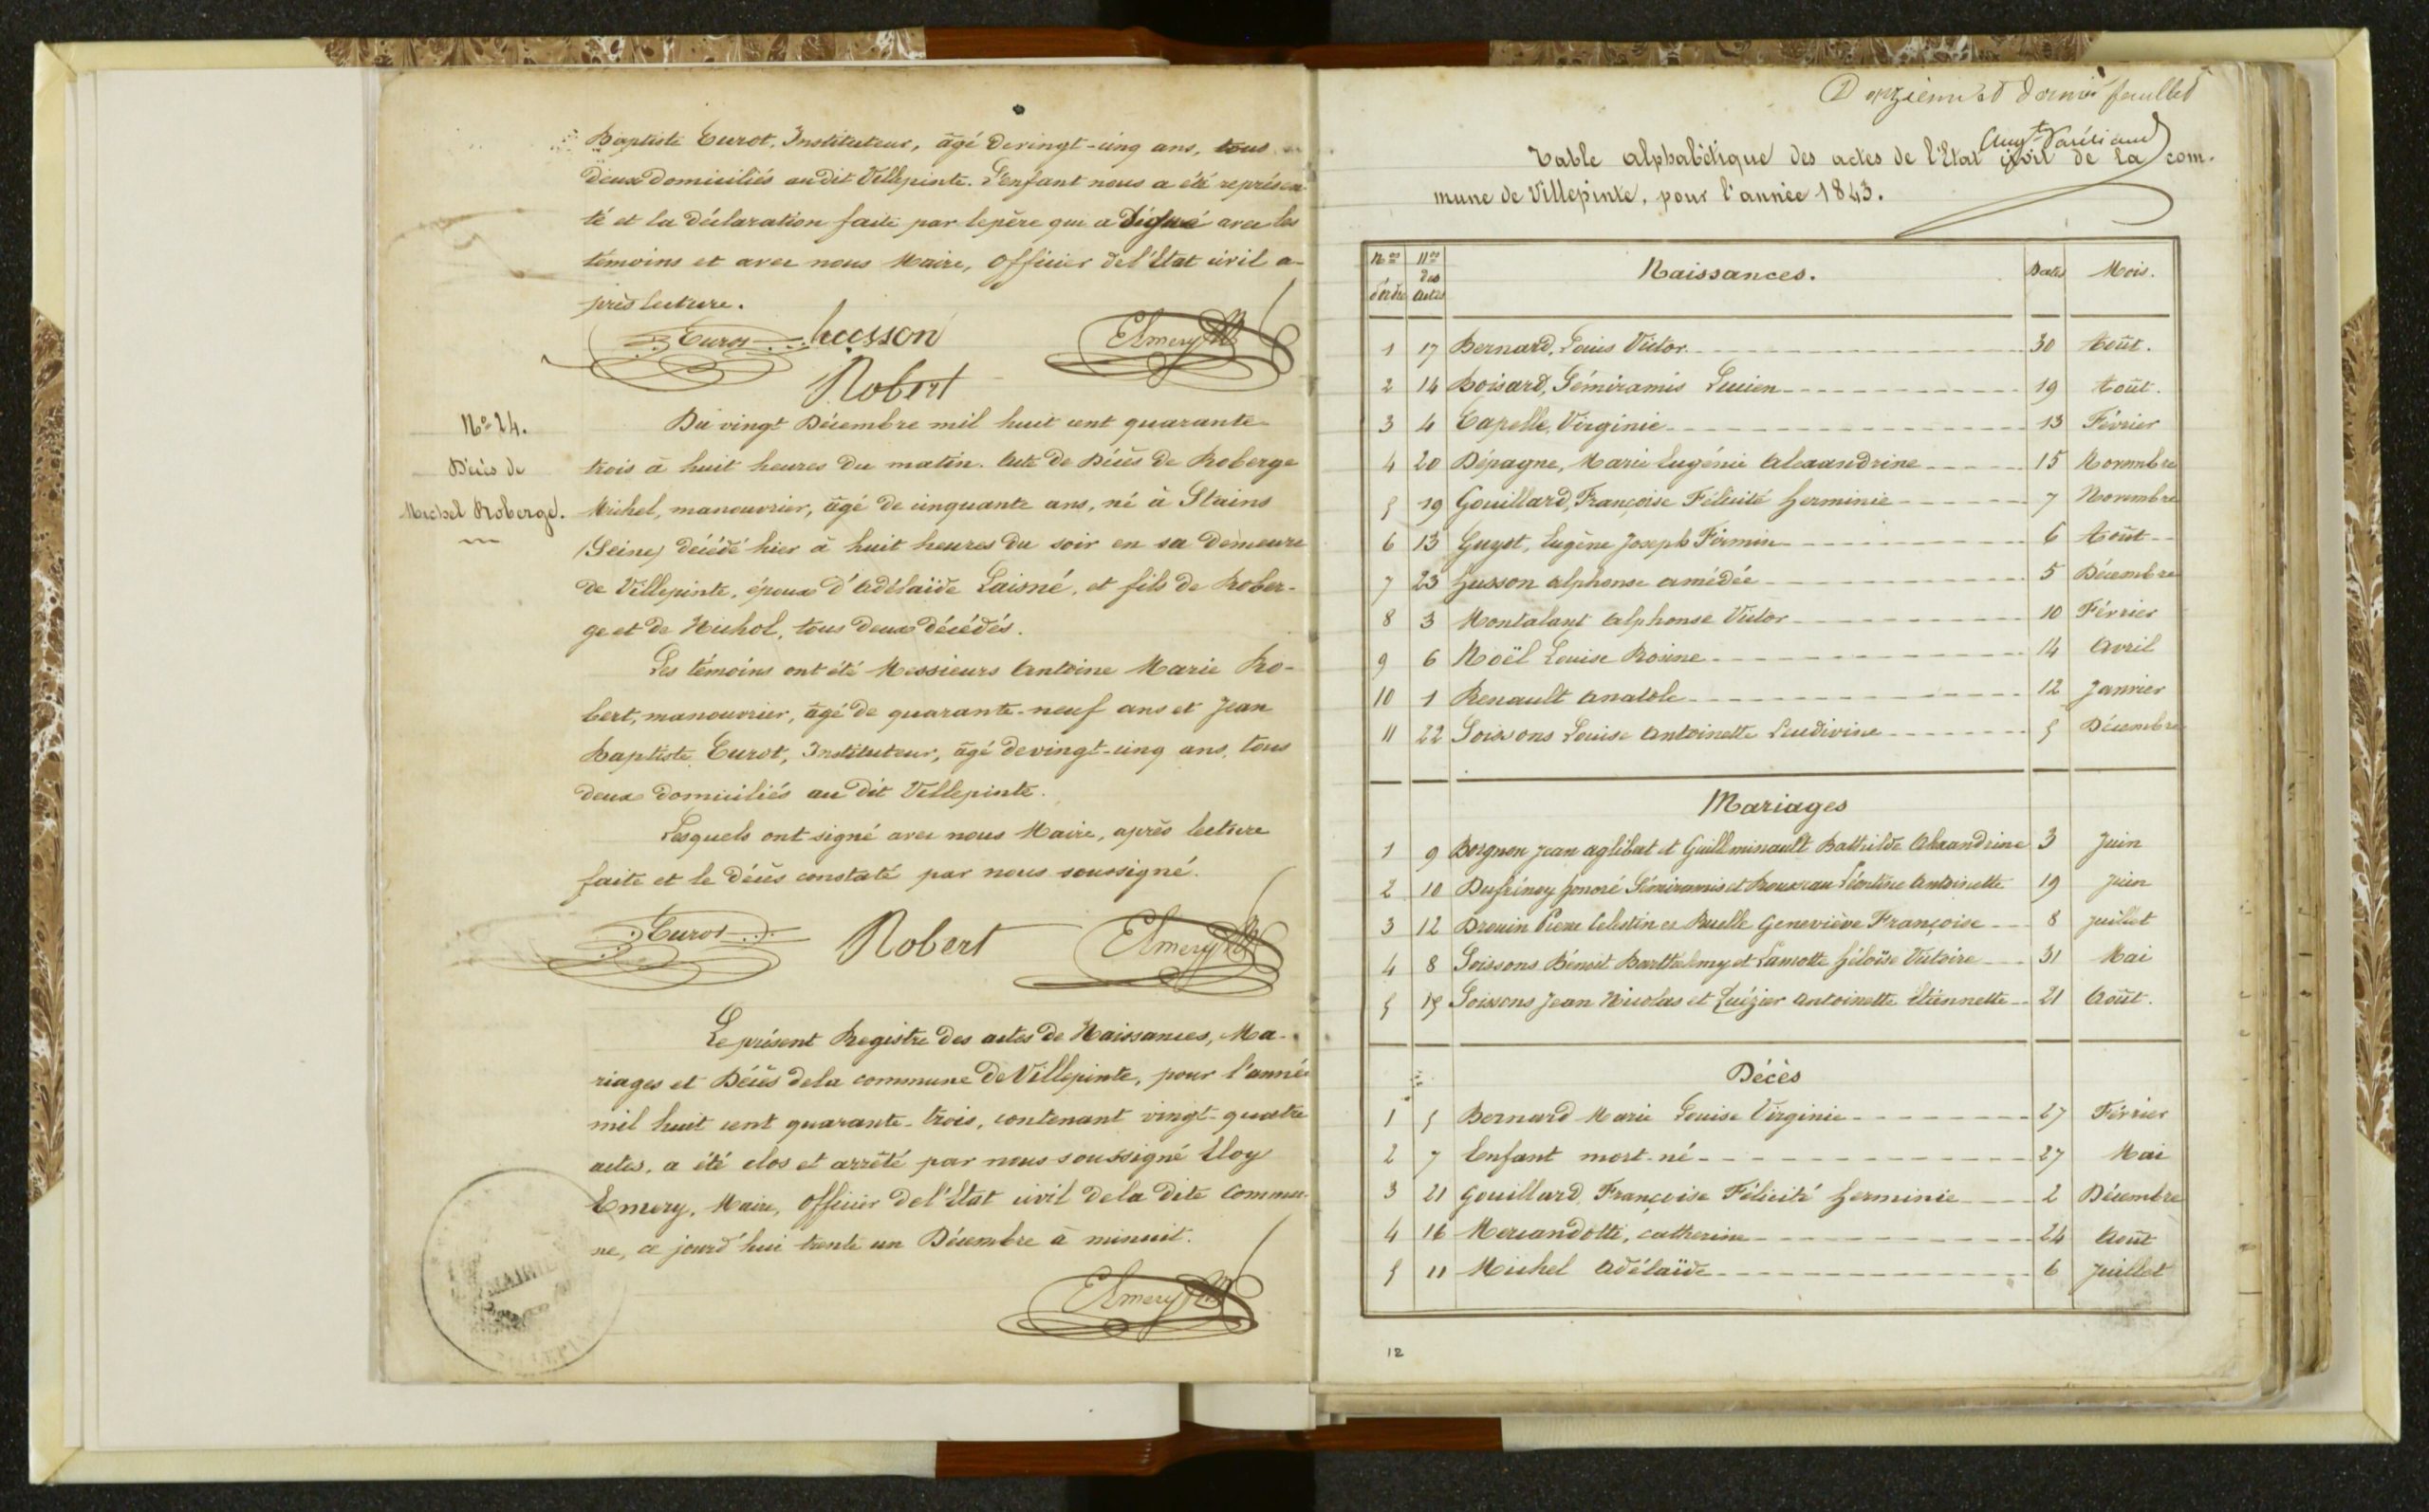 Baptiste Turot, Instituteur, âgé de vingt-cinq ans, tous
deux domiciliés au dit Villepinte. L'enfant nous a été représen
té et la déclaration faite par le père qui a signé avec les
témoins et avec nous Maire, officier de l'Etat civil a-
près lecture.
Turot husson Elmery
Robert
N° 24.
Décès de
Michel Roberge.
Du vingt Décembre mil huit cent quarante
trois à huit heures du matin. Acte de Décès de Roberge
Michel, manouvrier, âgé de cinquante ans, né à Stains
(Seine) décédé hier à huit heures du soir en sa demeure
de Villepinte, époux d'Adélaïde Laisné, et fils de Rober-
ge et de Michol, tous deux décédés.
Les témoins ont été Messieurs Antoine Marie Ro-
bert, manouvrier, âgé de quarante-neuf ans et Jean
Baptiste Turot, Instituteur, âgé de vingt-cinq ans, tous
deux domiciliés au dit Villepinte.
Lesquels ont signé avec nous Maire, après lecture
faite et le décès constaté par nous soussigné.
Turot Robert Elmery
Le présent Registre des actes de Naissances, Ma-
riages et Décès de la commune de Villepinte, pour l'année
mil huit cent quarante-trois, contenant vingt-quatre
actes, a été clos et arrêté par nous soussigné Eloy
Emery, Maire, officier de l'Etat civil de la dite commu-
ne, ce jourd'hui trente un Décembre à minuit.
Elmery
MAIRIE
onzième et dernier feuillet
Table alphabétique des actes de l'Etat civil de la com-
mune de Villepinte, pour l'année 1843.
Nos d'ordre Nos des actes Naissances. Dates Mois.
1 17 Bernard, Louis Victor 30 Août.
2 14 Boisard, Sémiramis Lucien 19 Août.
3 4 Capelle, Virginie 13 Février
4 20 Dépagne, Marie Eugénie Alexandrine 15 Novembre
5 19 Gouillard, Françoise Félicité herminie 7 Novembre
6 13 Guyot, Eugène Joseph Firmin 6 Août
7 23 husson alphonse amédée 5 Décembre
8 3 Montalant alphonse Victor 10 Février
9 6 Noël Louise Rosine 14 Avril
10 1 Renault anatole 12 Janvier
11 22 Soissons Louise Antoinette Ludivine 5 Décembre
Mariages
1 9 Borgnon Jean aglibert et Guillminault Bathilde Alexandrine 3 Juin
2 10 Dufrénoy honoré Sémiramis et Rousseau Léontine Antoinette 19 Juin
3 12 Drouin Pierre Célestin et Ruelle Geneviève Françoise 8 Juillet
4 8 Soissons Bénoit Barthelmy et Lamotte héloïse Victoire 31 Mai
5 15 Soissons Jean Nicolas et Luézier Antoinette Etiennette 21 Août.
Décès
1 5 Bernard Marie Louise Virginie 27 Février
2 7 Enfant mort-né 27 Mai
3 21 Gouillard Françoise Félicité herminie 2 Décembre
4 16 Mercandotti, catherine 24 Août
5 11 Michel Adélaïde 6 Juillet
12